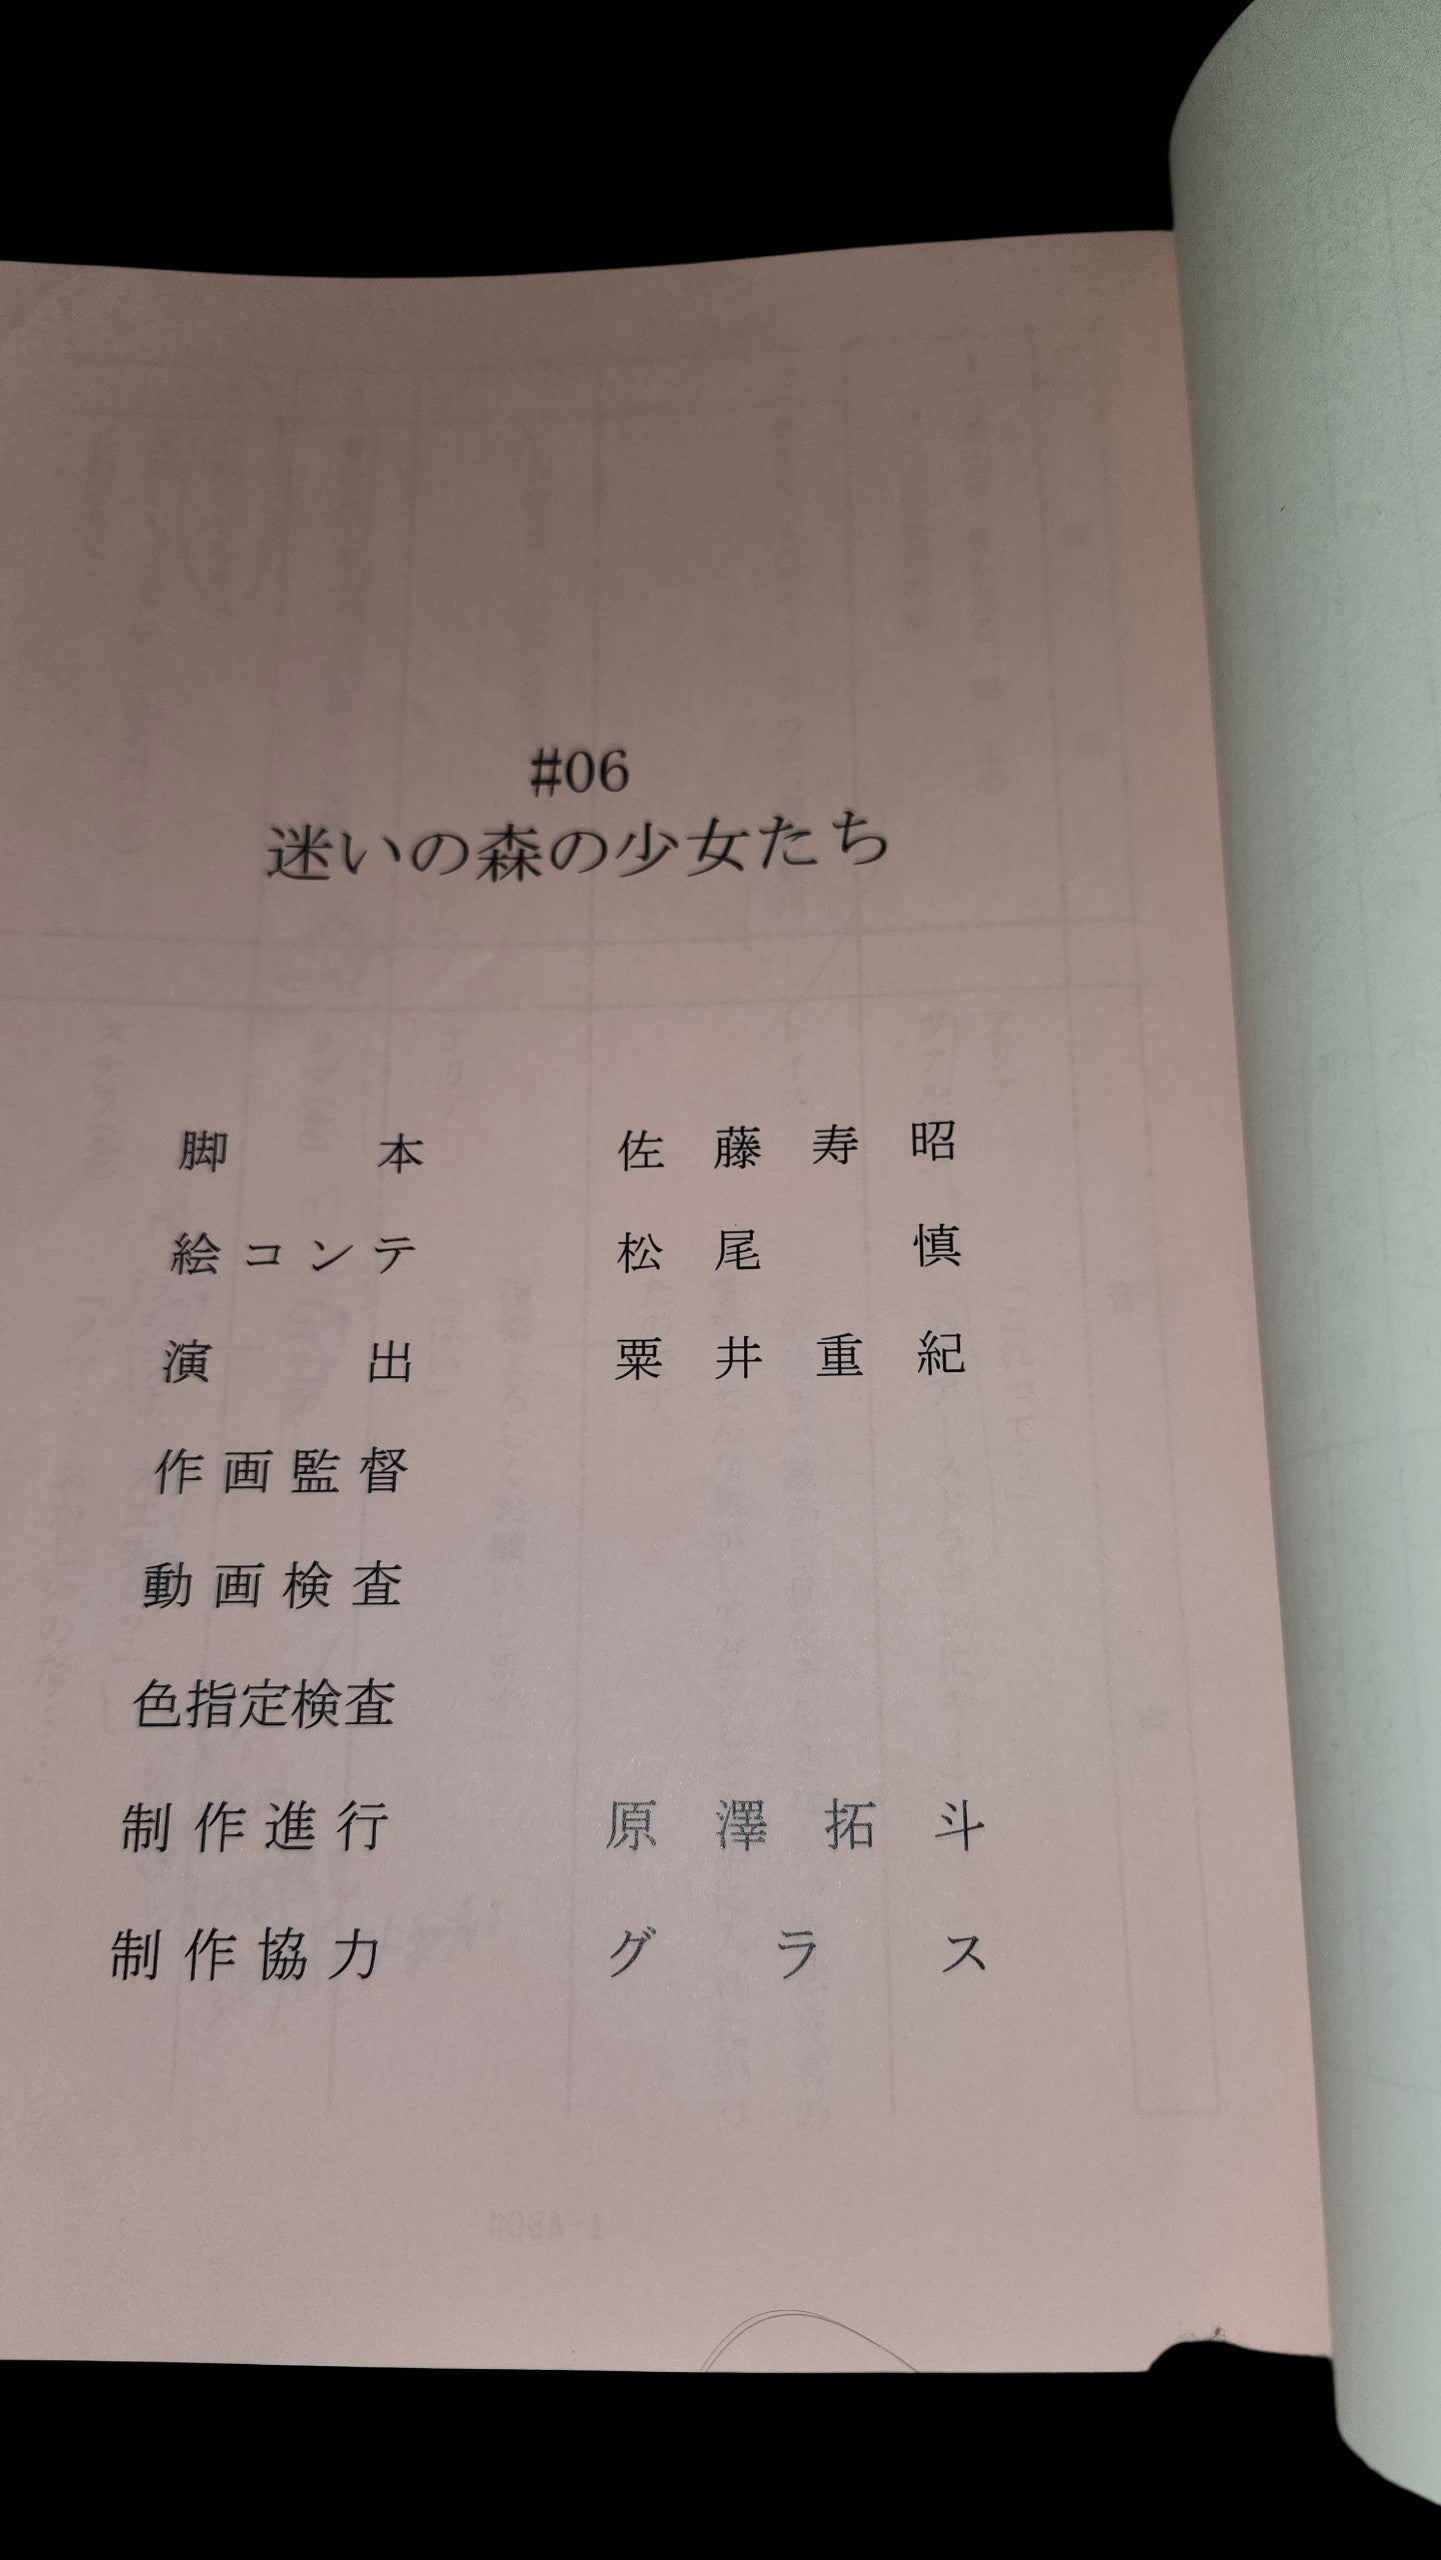 #06
迷いの森の少女たち
脚本 佐藤寿昭
絵コンテ 松尾慎
演出 粟井重紀
作画監督
動画検査
色指定検査
制作進行 原澤拓斗
制作協力 グラス